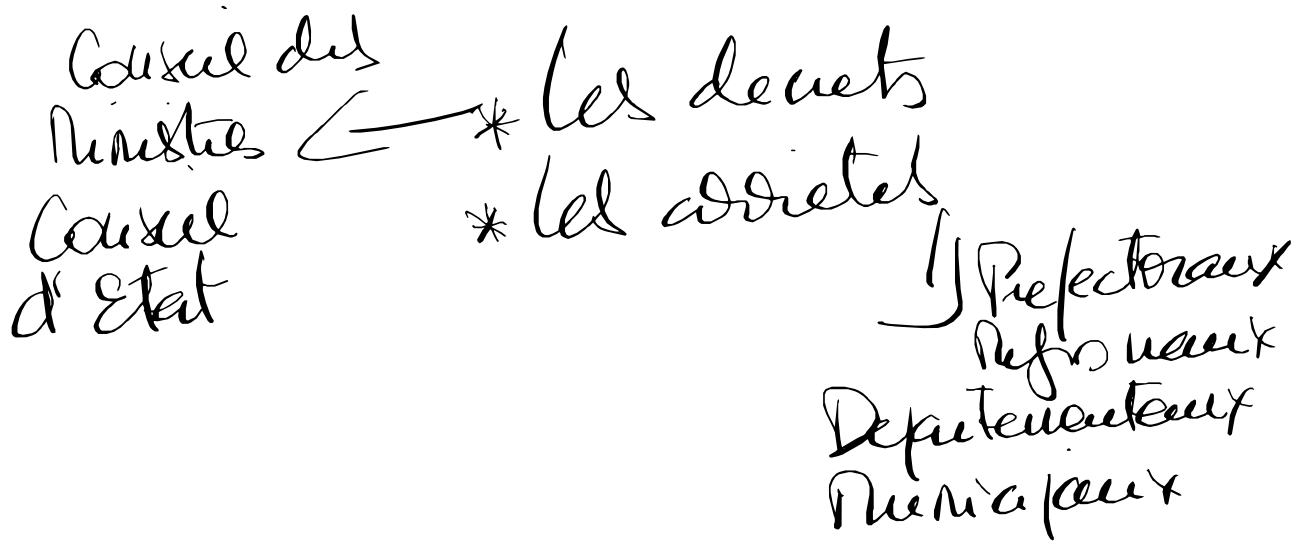 Conseil des
Ministres
Conseil
d'Etat
* Les decrets
* Les arrietes
Prefectoraux
Regionaux
Departementaux
Municipaux